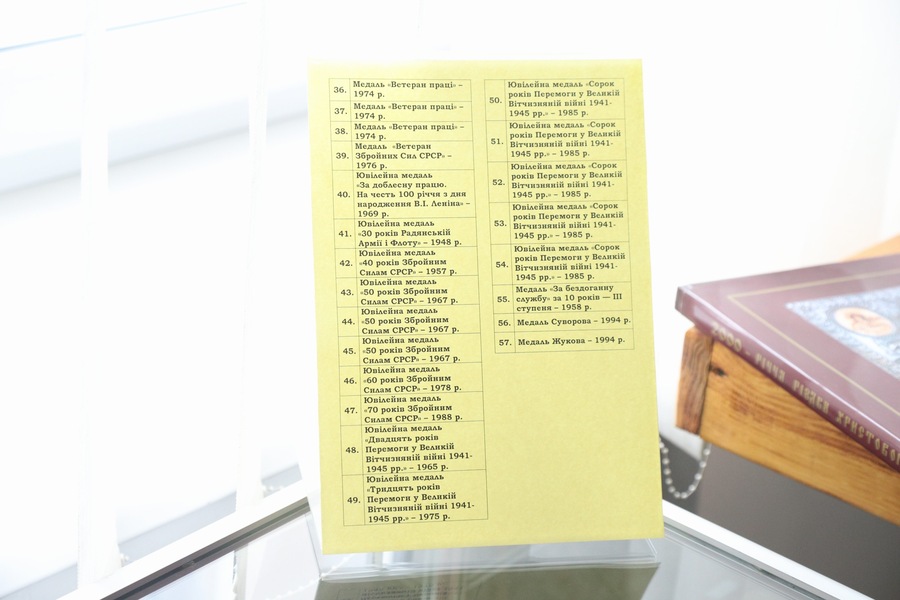 36. Медаль «Ветеран праці» –
1974 р.
37. Медаль «Ветеран праці» –
1974 р.
38. Медаль «Ветеран праці» –
1974 р.
39. Медаль «Ветеран
Збройних Сил СРСР» –
1976 р.
40. Ювілейна медаль
«За доблесну працю.
На честь 100 річчя з дня
народження В.І. Леніна» –
1969 р.
41. Ювілейна медаль
«30 років Радянській
Армії і Флоту» – 1948 р.
42. Ювілейна медаль
«40 років Збройним
Силам СРСР» – 1957 р.
43. Ювілейна медаль
«50 років Збройним
Силам СРСР» – 1967 р.
44. Ювілейна медаль
«50 років Збройним
Силам СРСР» – 1967 р.
45. Ювілейна медаль
«50 років Збройним
Силам СРСР» – 1967 р.
46. Ювілейна медаль
«60 років Збройним
Силам СРСР» – 1978 р.
47. Ювілейна медаль
«70 років Збройним
Силам СРСР» – 1988 р.
48. Ювілейна медаль
«Двадцять років
Перемоги у Великій
Вітчизняній війні 1941-
1945 рр.» – 1965 р.
49. Ювілейна медаль
«Тридцять років
Перемоги у Великій
Вітчизняній війні 1941-
1945 рр.» – 1975 р.
50. Ювілейна медаль «Сорок
років Перемоги у Великій
Вітчизняній війні 1941-
1945 рр.» – 1985 р.
51. Ювілейна медаль «Сорок
років Перемоги у Великій
Вітчизняній війні 1941-
1945 рр.» – 1985 р.
52. Ювілейна медаль «Сорок
років Перемоги у Великій
Вітчизняній війні 1941-
1945 рр.» – 1985 р.
53. Ювілейна медаль «Сорок
років Перемоги у Великій
Вітчизняній війні 1941-
1945 рр.» – 1985 р.
54. Ювілейна медаль «Сорок
років Перемоги у Великій
Вітчизняній війні 1941-
1945 рр.» – 1985 р.
55. Медаль «За бездоганну
службу» за 10 років — III
ступеня – 1958 р.
56. Медаль Суворова – 1994 р.
57. Медаль Жукова – 1994 р.
2000 - РІЧЧЯ РІЗДВА